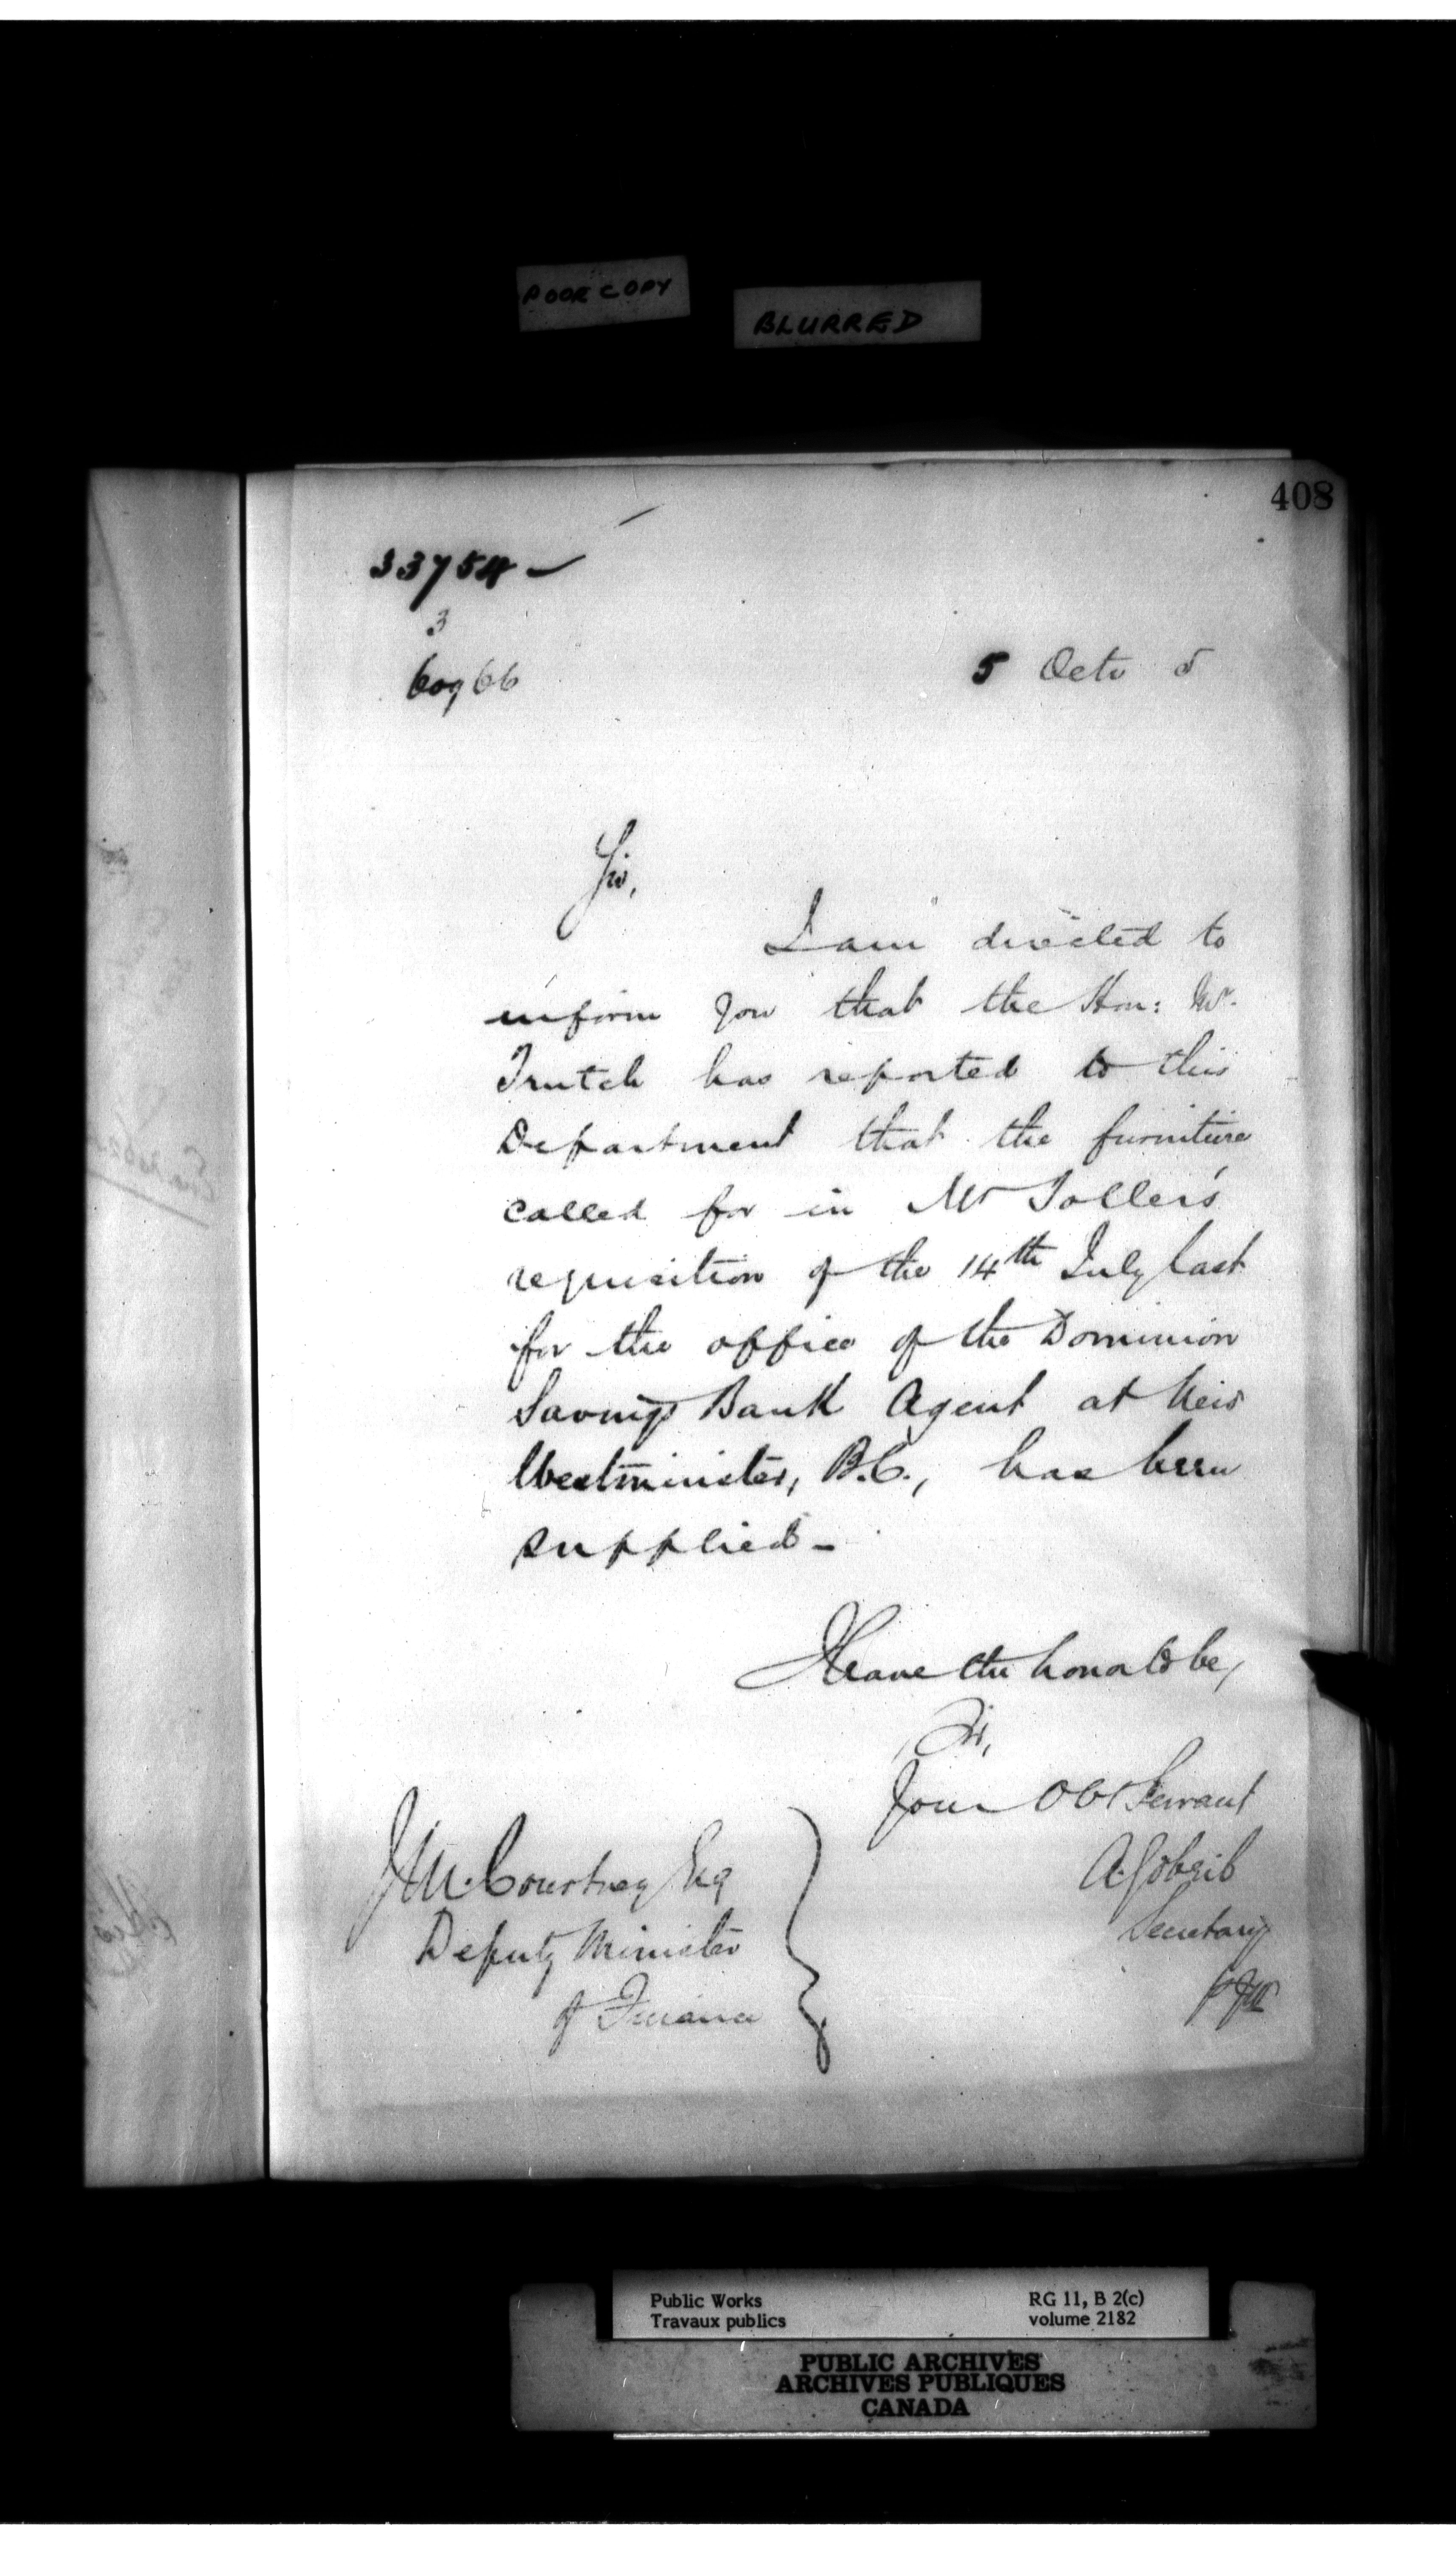 POOR COPY
BLURRED
408
33754 -
3
60966
5 Octo 5
Sir,
I am directed to
inform you that the Hon: Mr.
Trutch has reported to this
Department that the furniture
called for in Mr Toller's
requisition of the 14th July last
for the office of the Dominion
Savings Bank Agent at New
Westminster, B.C., has been
supplied -
I have the honor to be,
Sir,
Your Obt Servant
A. Gobeil
Secretary
J. M. Courtney Esq
Deputy Minister
of Finance
Public Works
Travaux publics
RG 11, B 2(c)
volume 2182
PUBLIC ARCHIVES
ARCHIVES PUBLIQUES
CANADA